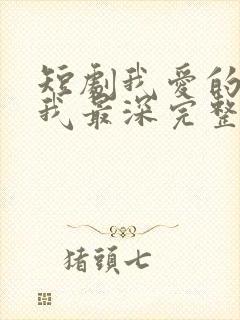 短劇我愛的
我最深完整
猪頭七